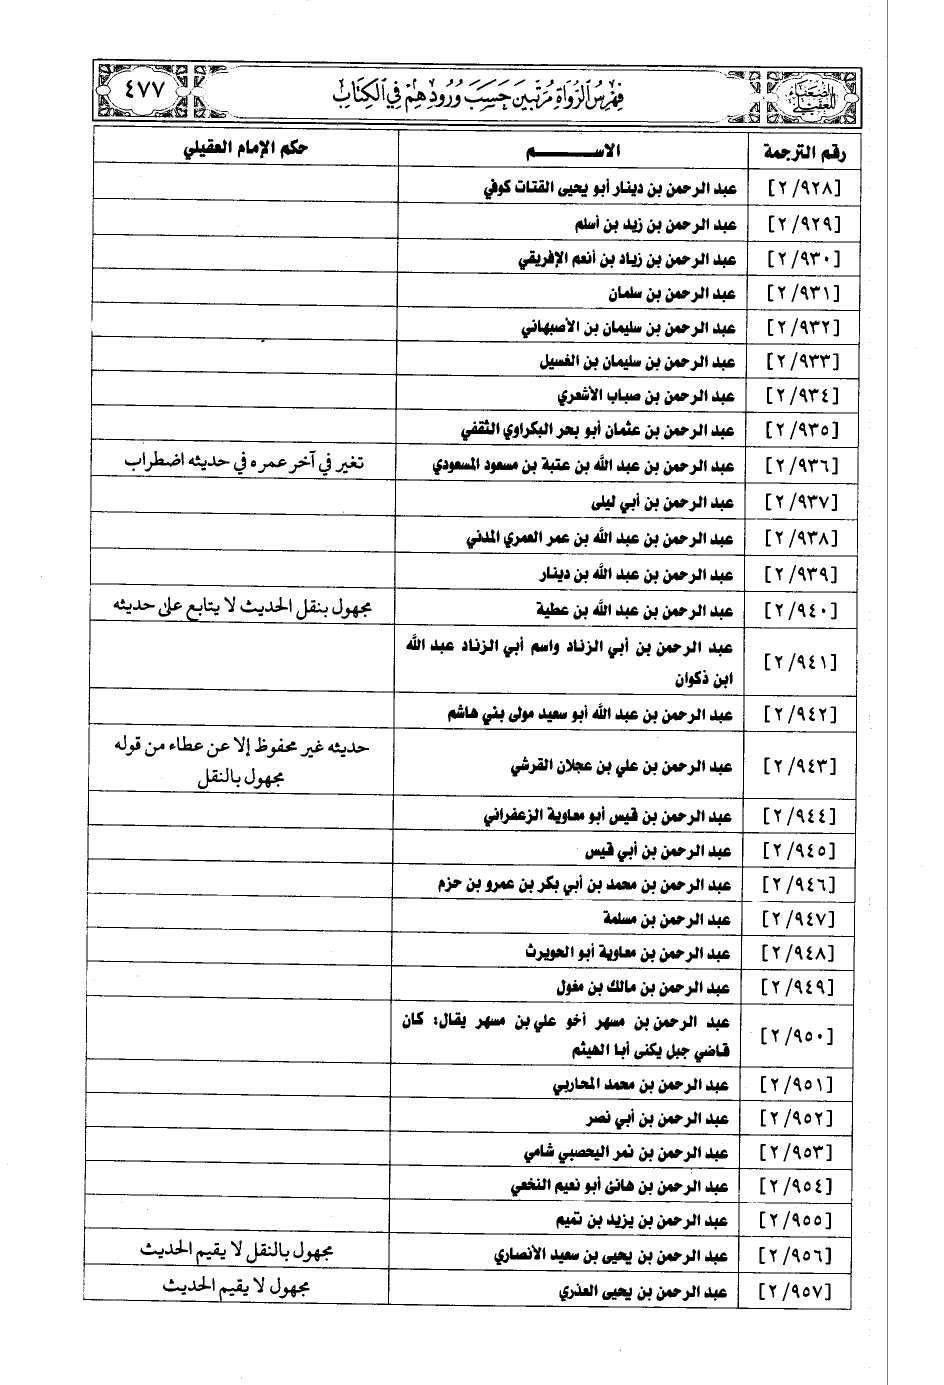 الضعفاء
للعقيلي
فهرس الرواة مرتبين حسب ورودهم في الكتاب
٤٧٧
رقم الترجمة الاســـــم حكم الإمام العقيلي
[٢/٩٢٨] عبد الرحمن بن دينار أبو يحيى القتات كوفي
[٢/٩٢٩] عبد الرحمن بن زيد بن أسلم
[٢/٩٣٠] عبد الرحمن بن زياد بن أنعم الإفريقي
[٢/٩٣١] عبد الرحمن بن سلمان
[٢/٩٣٢] عبد الرحمن بن سليمان بن الأصبهاني
[٢/٩٣٣] عبد الرحمن بن سليمان بن الغسيل
[٢/٩٣٤] عبد الرحمن بن صباب الأشعري
[٢/٩٣٥] عبد الرحمن بن عثمان أبو بحر البكراوي الثقفي
[٢/٩٣٦] عبد الرحمن بن عبد الله بن عتبة بن مسعود المسعودي تغير في آخر عمره في حديثه اضطراب
[٢/٩٣٧] عبد الرحمن بن أبي ليلى
[٢/٩٣٨] عبد الرحمن بن عبد الله بن عمر العمري المدني
[٢/٩٣٩] عبد الرحمن بن عبد الله بن دينار
[٢/٩٤٠] عبد الرحمن بن عبد الله بن عطية مجهول بنقل الحديث لا يتابع على حديثه
[٢/٩٤١] عبد الرحمن بن أبي الزناد واسم أبي الزناد عبد الله
ابن ذكوان
[٢/٩٤٢] عبد الرحمن بن عبد الله أبو سعيد مولى بني هاشم
[٢/٩٤٣] عبد الرحمن بن علي بن عجلان القرشي حديثه غير محفوظ إلا عن عطاء من قوله
مجهول بالنقل
[٢/٩٤٤] عبد الرحمن بن قيس أبو معاوية الزعفراني
[٢/٩٤٥] عبد الرحمن بن أبي قيس
[٢/٩٤٦] عبد الرحمن بن محمد بن أبي بكر بن عمرو بن حزم
[٢/٩٤٧] عبد الرحمن بن مسلمة
[٢/٩٤٨] عبد الرحمن بن معاوية أبو الحويرث
[٢/٩٤٩] عبد الرحمن بن مالك بن مغول
[٢/٩٥٠] عبد الرحمن بن مسهر أخو علي بن مسهر يقال: كان
قاضي جبل يكنى أبا الهيثم
[٢/٩٥١] عبد الرحمن بن محمد المحاربي
[٢/٩٥٢] عبد الرحمن بن أبي نصر
[٢/٩٥٣] عبد الرحمن بن نمر اليحصبي شامي
[٢/٩٥٤] عبد الرحمن بن هانئ أبو نعيم النخعي
[٢/٩٥٥] عبد الرحمن بن يزيد بن تميم
[٢/٩٥٦] عبد الرحمن بن يحيى بن سعيد الأنصاري مجهول بالنقل لا يقيم الحديث
[٢/٩٥٧] عبد الرحمن بن يحيى العذري مجهول لا يقيم الحديث